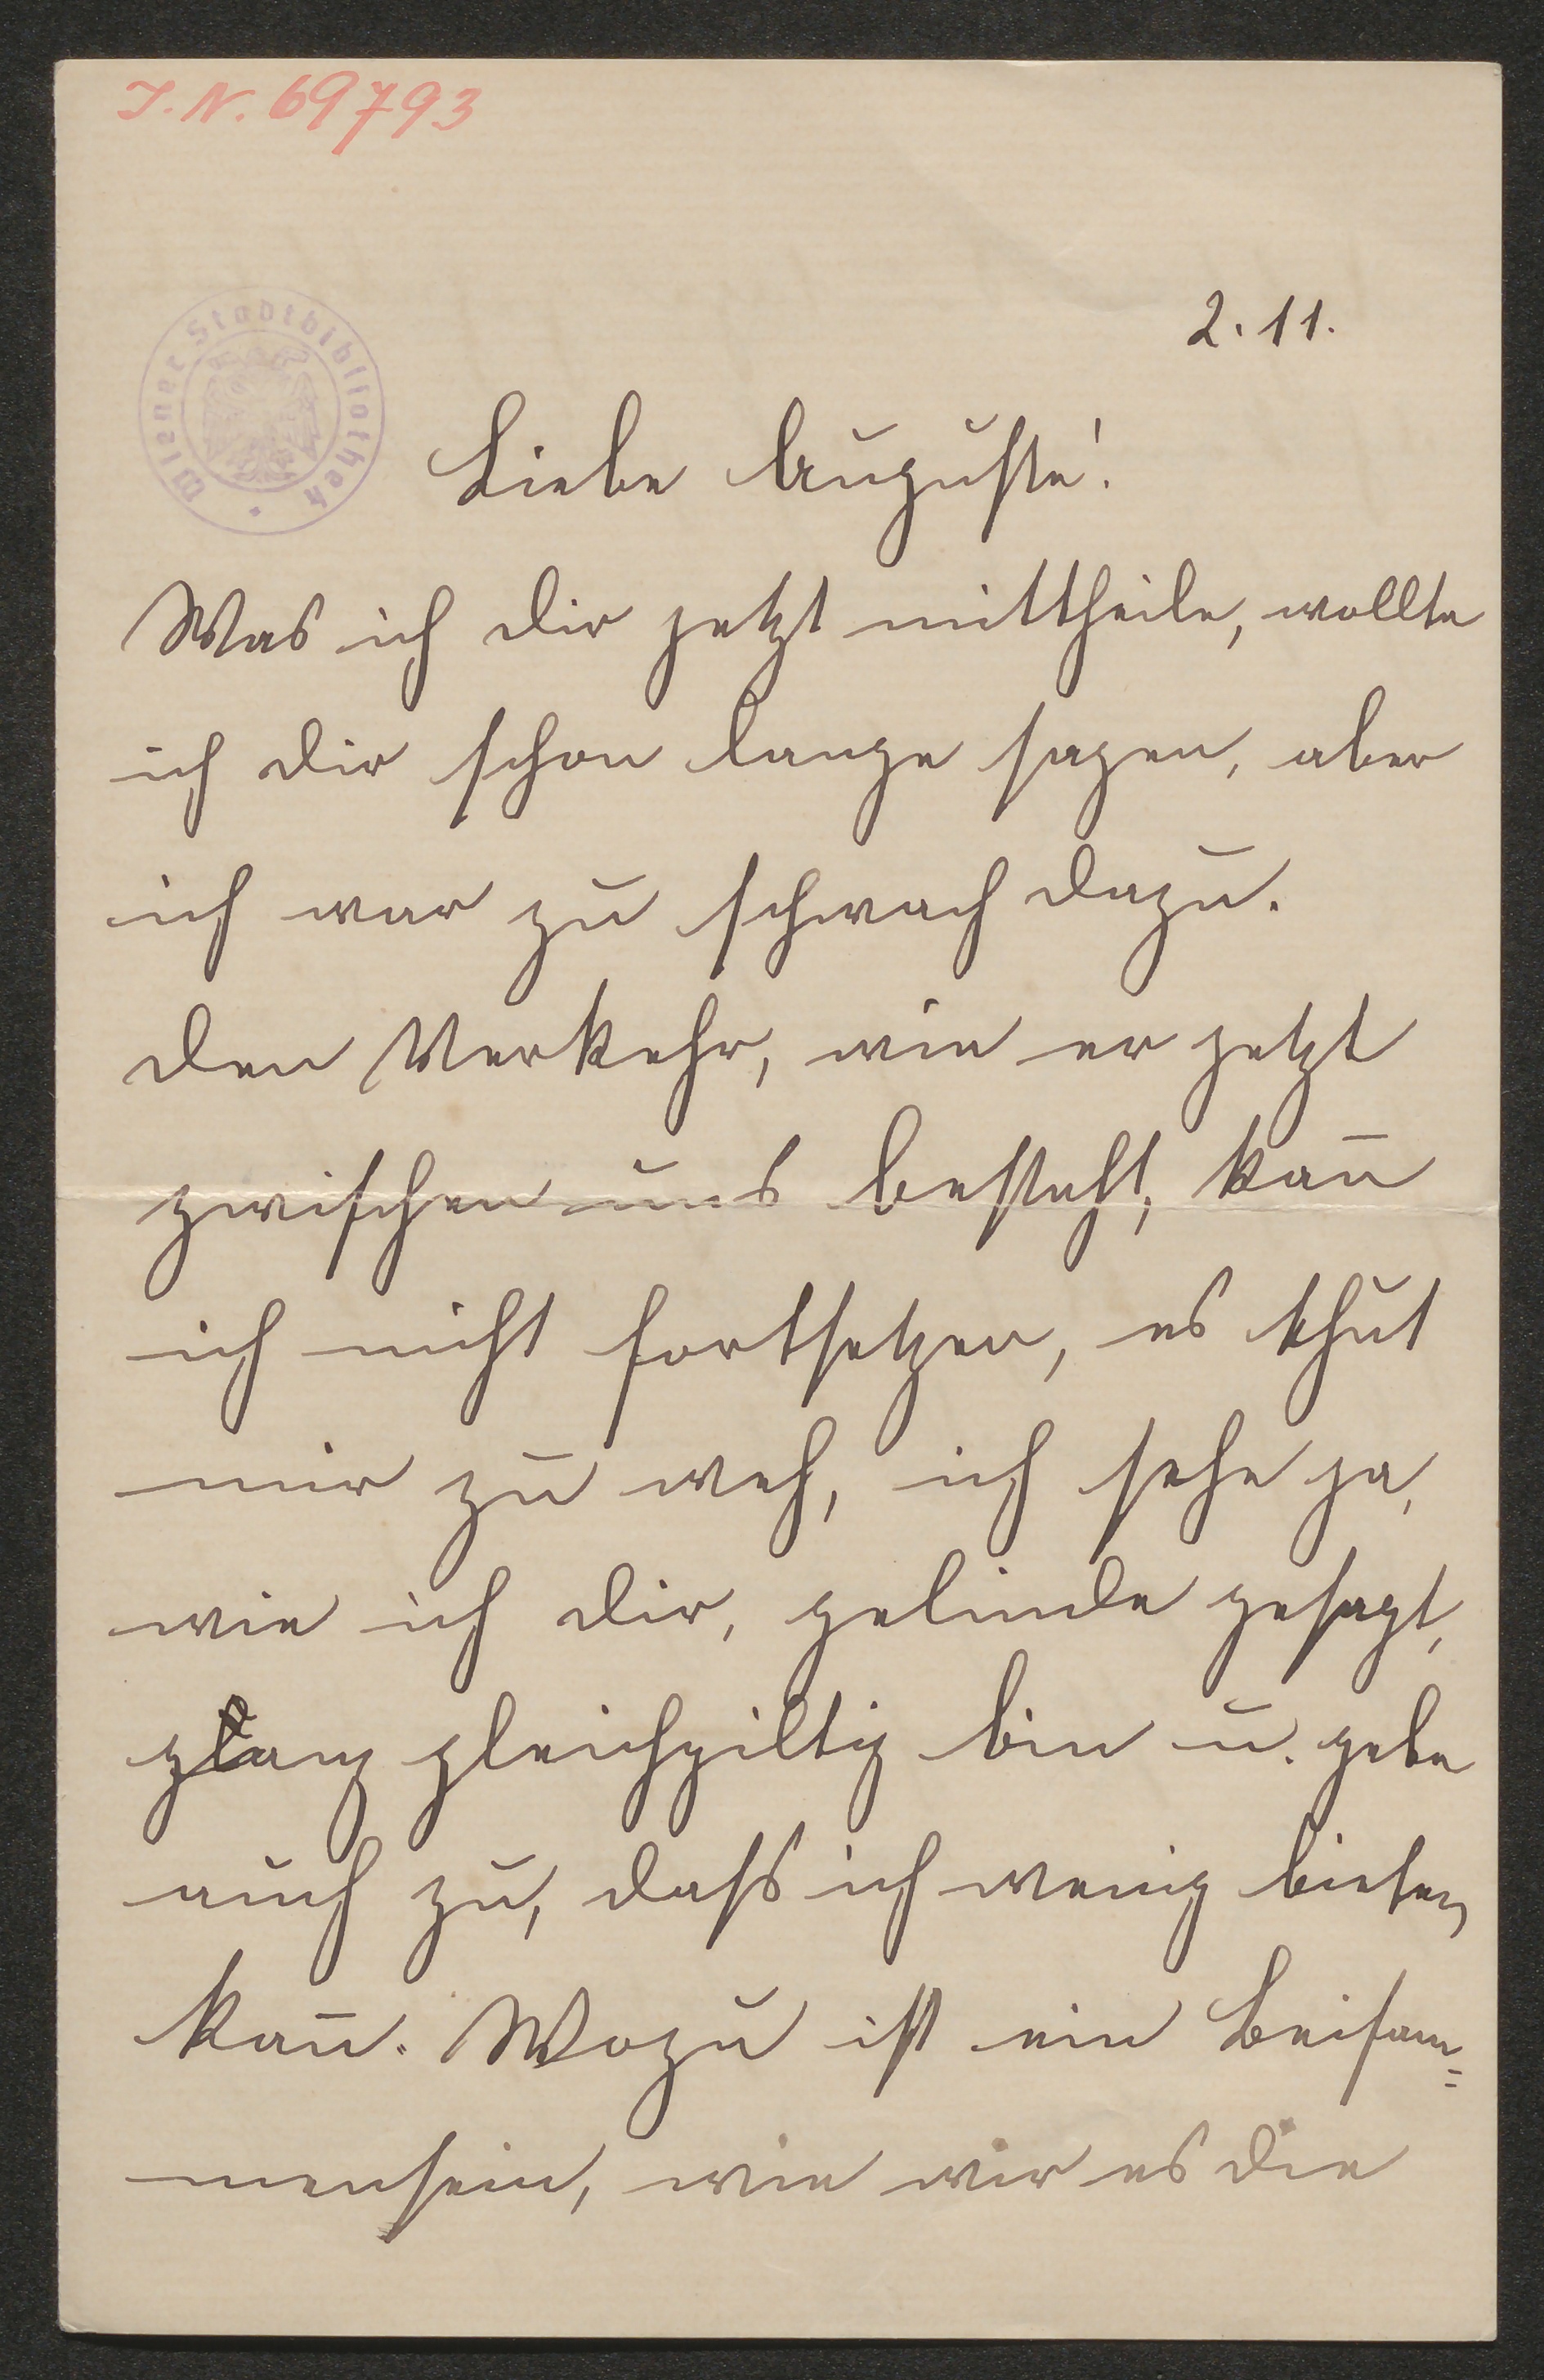 I. N. 69793
Wiener Stadtbibliothek
2. 11.
Liebe Auguste!
Was ich dir jetzt mittheile, wollte
ich dir schon lange sagen, aber
ich war zu schwach dazu.
Den Verkehr, wie er jetzt
zwischen uns besteht, kan̄
ich nicht fortsetzen, es thut
mir zu weh, ich sehe ja,
wie ich dir, gelinde gesagt,
ganz gleichgiltig bin u. gebe
auch zu, dass ich wenig bieten
kan̄. Wozu ist ein Beisam=
mensein, wie wir es die